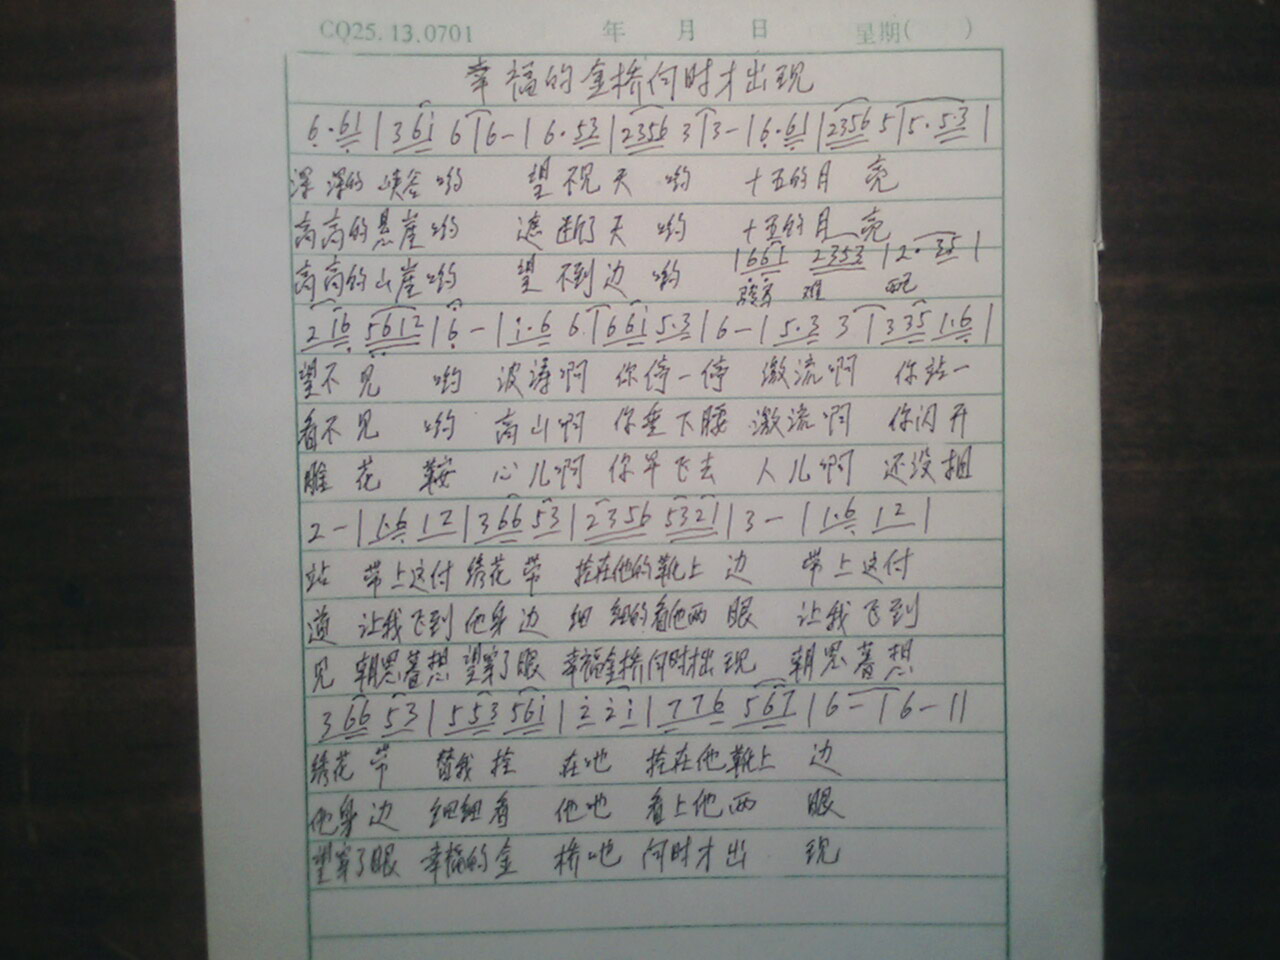 CQ25.13.0701 年 月 日 星期( )
幸福的金桥何时才出现
6·61|361 6|6-|6·53|2356 3|3-|6·61|2356 5|5·5·3|
深深的峡谷哟 望不见天 哟 十五的月 亮
高高的悬崖哟 遮断了天 哟 十五的月 亮
1661 2353|2·35|
高高的山崖哟 望不到边 哟
216 5612|6-|i·6 6|66i 5·3|6-|5·3 3|335 1·6|
望不见 哟 波涛啊 你停一停 激流啊 你站一
看不见 哟 高山啊 你垂下腰 激流啊 你闪开
雕花 鞍 心儿啊 你早飞去 人儿啊 还没相
2-|1·6 12|366 53|2356 5321|3-|1·6 12|
站 带上这付绣花 带 拴在他的靴上 边 带上这付
道 让我飞到他身 边 细细的看他两 眼 让我飞到
见 朝思暮想 望穿了眼 幸福金桥何时才出现 朝思暮想
3 66 53|553 56i|2 2i|776 567|6-|6-||
绣花 带 替我 拴 在吔 拴在他靴上 边
他身 边 细细看 他吔 看上他两 眼
望穿了眼 幸福的金 桥吔 何时才出 现